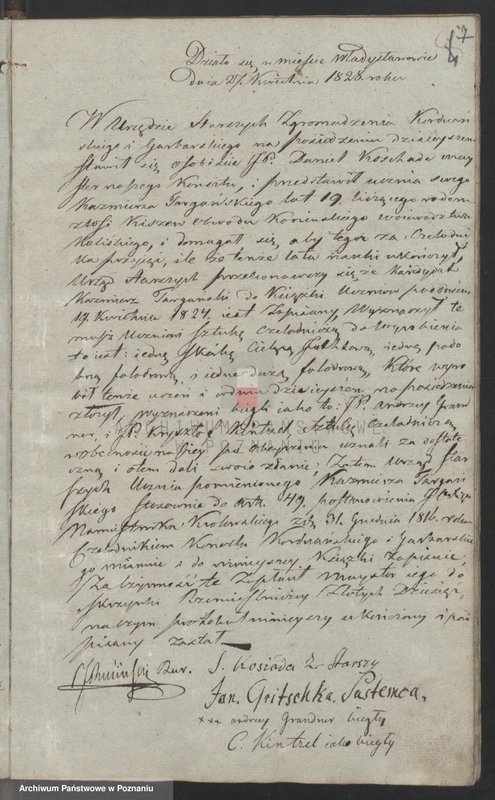 7
Działo się w mieście Władysławowie
dnia 27 Kwietnia 1828 roku
W Urzędzie Starszych Zgromadzenia Korduań
skiego i Garbarskiego na posiedzeniu dzisiejszem
stawił się osobiście JP. Daniel Koschade may
ster naszego Konsztu, i przedstawił ucznia swego
Kazimierza Targańskiego lat 19 liczącego rodem
z Wsi Kiszew Obwodu Konińskiego Woiewództwa
Kaliskiego, i domagał się, aby tegoż za Czeladni
ka przyjąć, ile że tenże lata nauki ukończył,
Urząd Starszych przekonawszy się że Kandydat
Kazimierz Targański do Książki Uczniów pod dniem
19 Kwietnia 1824 iest Zapisany, Wyznaczył te
muż Uczniowi Sztukę Czeladniczą do Wyrobienia
to iest: iedną Skórkę Cielęcą, iedną podo
bną falodrową, i iedną dużą falodrową, Które wyro
bił tenże uczeń i w dniu dzisiejszem na posiedzeniu
złożył, wyznaczeni biegli iako to: JP. Andrzej Grand
ner, i JP. Krysztof Kintzel Sztukę Czeladniczą
w obecności na Sesyi po obejrzeniu uznali za dostate
czną i otem dali swoie zdanie; Zatem Urząd Star
szych Ucznia pomienionego Kazimierza Targań
skiego stosownie do Art. 49 postanowienia
Namiestnika Królewskiego z dn. 31. Grudnia 1816. roku
Czeladnikiem Konsztu Korduańskiego i Garbarskie
go mianuie i do niniejszej Książki Zapisuie;
Za czynność te Zapłacił mayster iego do
skrzynki Rzemieślniczey Złotych Dziesięć,
na czym protokół niniejszy ukończony i pod
pisany został
Bur. S. Kosiada Z. Starszy
Jan. Gritschka. Pastemca.
xxx andrzey Grandner biegły
C. Kintzel iako biegły
ARCHIWUM PAŃSTWOWE
W POZNANIU
Archiwum Państwowe w Poznaniu